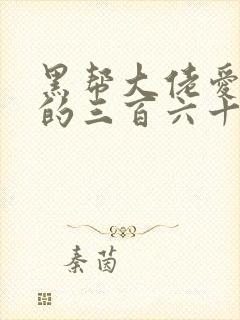 黑帮大佬爱
的三百六十
秦茵